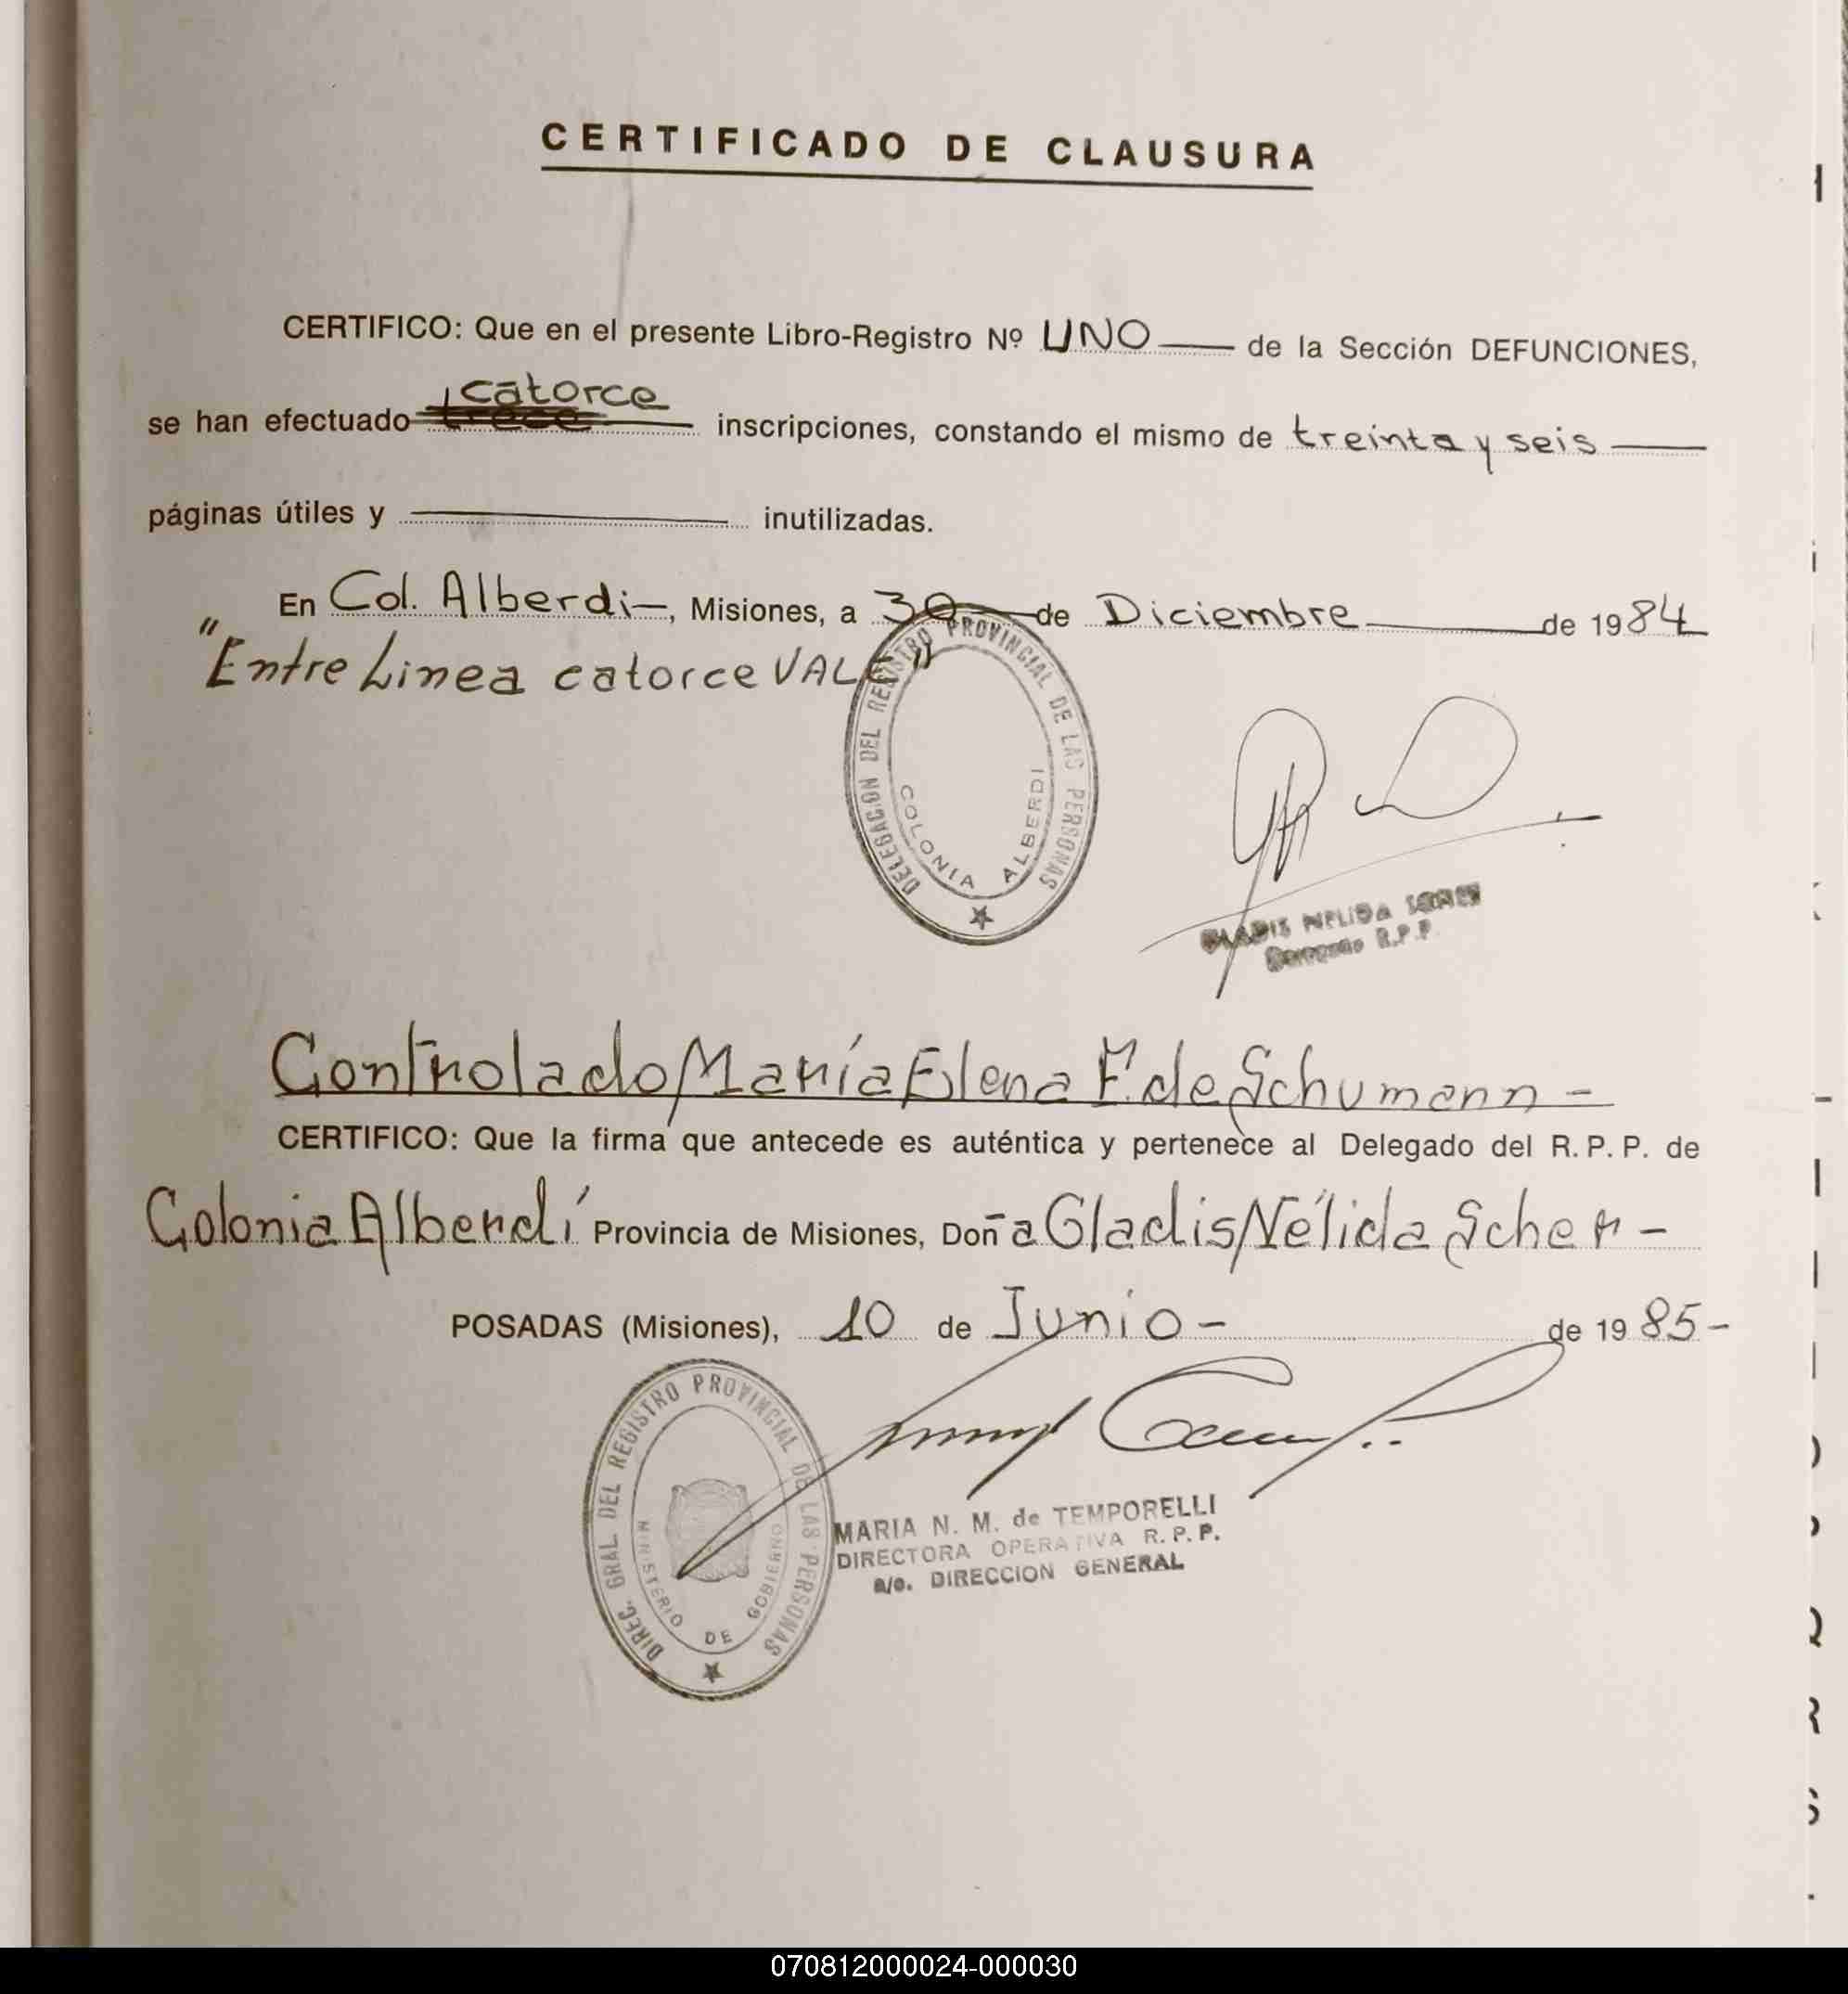 CERTIFICADO DE CLAUSURA
CERTIFICO: Que en el presente Libro-Registro Nº UNO de la Sección DEFUNCIONES,
catorce
se han efectuado trece inscripciones, constando el mismo de treinta y seis
páginas útiles y inutilizadas.
En Col. Alberdi-, Misiones, a 30 de Diciembre de 1984
"Entre Linea catorce VALE"
DELEGACION DEL REGISTRO PROVINCIAL DE LAS PERSONAS
COLONIA ALBERDI
GLADIS NELIDA
R.P.P.
Controlado María Elena F. de Schumann -
CERTIFICO: Que la firma que antecede es auténtica y pertenece al Delegado del R. P. P. de
Colonia Alberdí Provincia de Misiones, Doña Gladis Nélida Scher -
POSADAS (Misiones), 10 de Junio - de 1985-
DIREC. GRAL DEL REGISTRO PROVINCIAL DE LAS PERSONAS
MINISTERIO DE GOBIERNO
MARIA N. M. de TEMPORELLI
DIRECTORA OPERATIVA R. P. P.
a/c. DIRECCION GENERAL
070812000024-000030